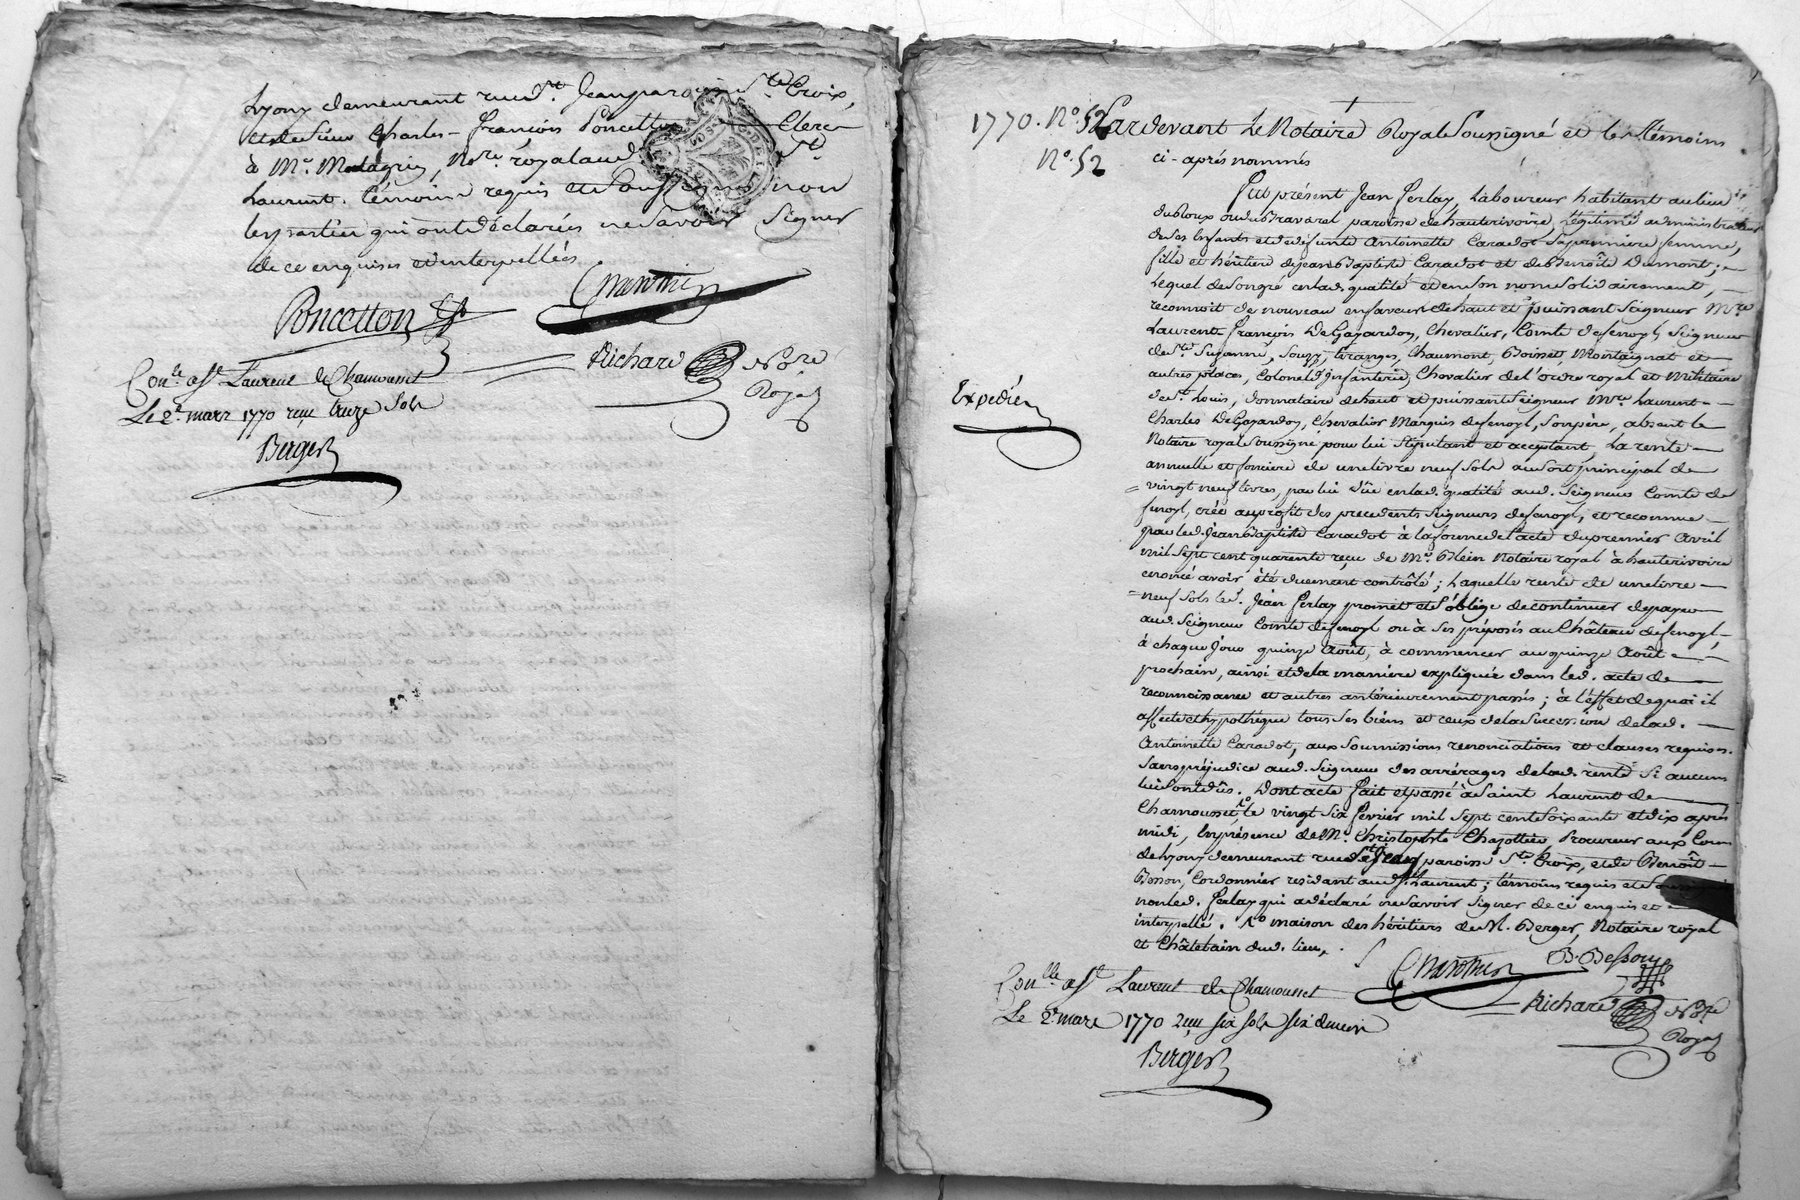 Lyon, demeurant rue St. Jean paroisse Ste. Croix,
et de Sieur Charles-François Poncetton Clerc
à Me. Matagrin, Nore. royal aud. St.
Laurent. témoins requis et Soussignés non
les parties qui ont déclarés ne Savoir Signer
de ce enquises et interpellées.
Poncetton
Richard Nore.
Royal
Conlé. à St. Laurent de Chamousset
Le 2e. mars 1770 reçu treize Sols
Berger
1770. No. 52
No. 52
Pardevant Le Notaire Royal Soussigné et les témoins
ci-après nommés
fut présent Jean ferlay, Laboureur habitant au lieu
du Roux ou du Bravarel paroisse de hauterivoire, légitime administrateur
de Ses Enfants et de défunte Antoinette Caradot Sa premiere femme,
fille et héritiere de Jean Baptiste Caradot et de Benoîte Dumont;
Lequel de Son gré en lad. qualité et en Son nom Solidairement,
reconnoit de nouveau en faveur de haut et puissant Seigneur Mre.
Laurent François De Gayardon, Chevalier, Comte de fenoyl, Seigneur
de Ste. Suzanne, Souzy, tiranges, Chaumont, Boisset, Montaignat et
autres places, Colonel d'Infanterie, Chevalier de l'ordre royal et Militaire
de St. Louis, donnataire de haut et puissant Seigneur Mre. Laurent
Charles De Gayardon, Chevalier Marquis de fenoyl, Son père, absent le
Notaire royal Soussigné pour lui Stipulant et acceptant, La rente
annuelle et fonciere de une livre neuf Sols au Sort principal de
vingt neuf livres, par lui dûe en lad. qualité aud. Seigneur Comte de
fenoyl, créée au profit des precedents Seigneurs de fenoyl, et reconnue
par led. Jean Baptiste Caradot à la forme de l'acte du premier avril
mil Sept cent quarente reçu de Me. Blein Notaire royal à hauterivoire
énoncé avoir été duement contrôlé; Laquelle rente de une livre
neuf Sols led. Jean ferlay promet et S'oblige de continuer de payer
aud. Seigneur Comte de fenoyl ou à Ses préposés au Château de fenoyl,
à chaque Jour quinze Août, à commencer au quinze Août
prochain, ainsi et de la maniere expliquée dans led. acte de
reconnoissance et autres antérieurement passés; à l'effet de quoi il
affecte et hypothéque tous Ses biens et ceux de la Succession de lad.
Antoinette Caradot, aux Soumissions renonciations et clauses requises.
Sans préjudice aud. Seigneur des arrérages de lad. rente Si aucuns
lui Sont dûs. Dont acte fait et passé à Saint Laurent de
Chamousset, le vingt Six fevrier mil Sept cent Soixante et dix après
midi, En présence de Me. Christophle Chazottier Procureur aux Cours
de Lyon, demeurant rue St. Jean paroisse Ste. Croix, et de Benoît
Besson, Cordonnier residant aud. St. Laurent; témoins requis et Soussignés
non led. ferlay qui a déclaré ne Savoir Signer de ce enquis et
interpellé. maison des héritiers de M. Berger, Notaire royal
et Châtelain dud. lieu,
B. Besson
Richard Nore.
Royal
Expédié
Conlle. à St. Laurent de Chamousset
Le 2e. mars 1770 reçu six sols six deniers
Berger